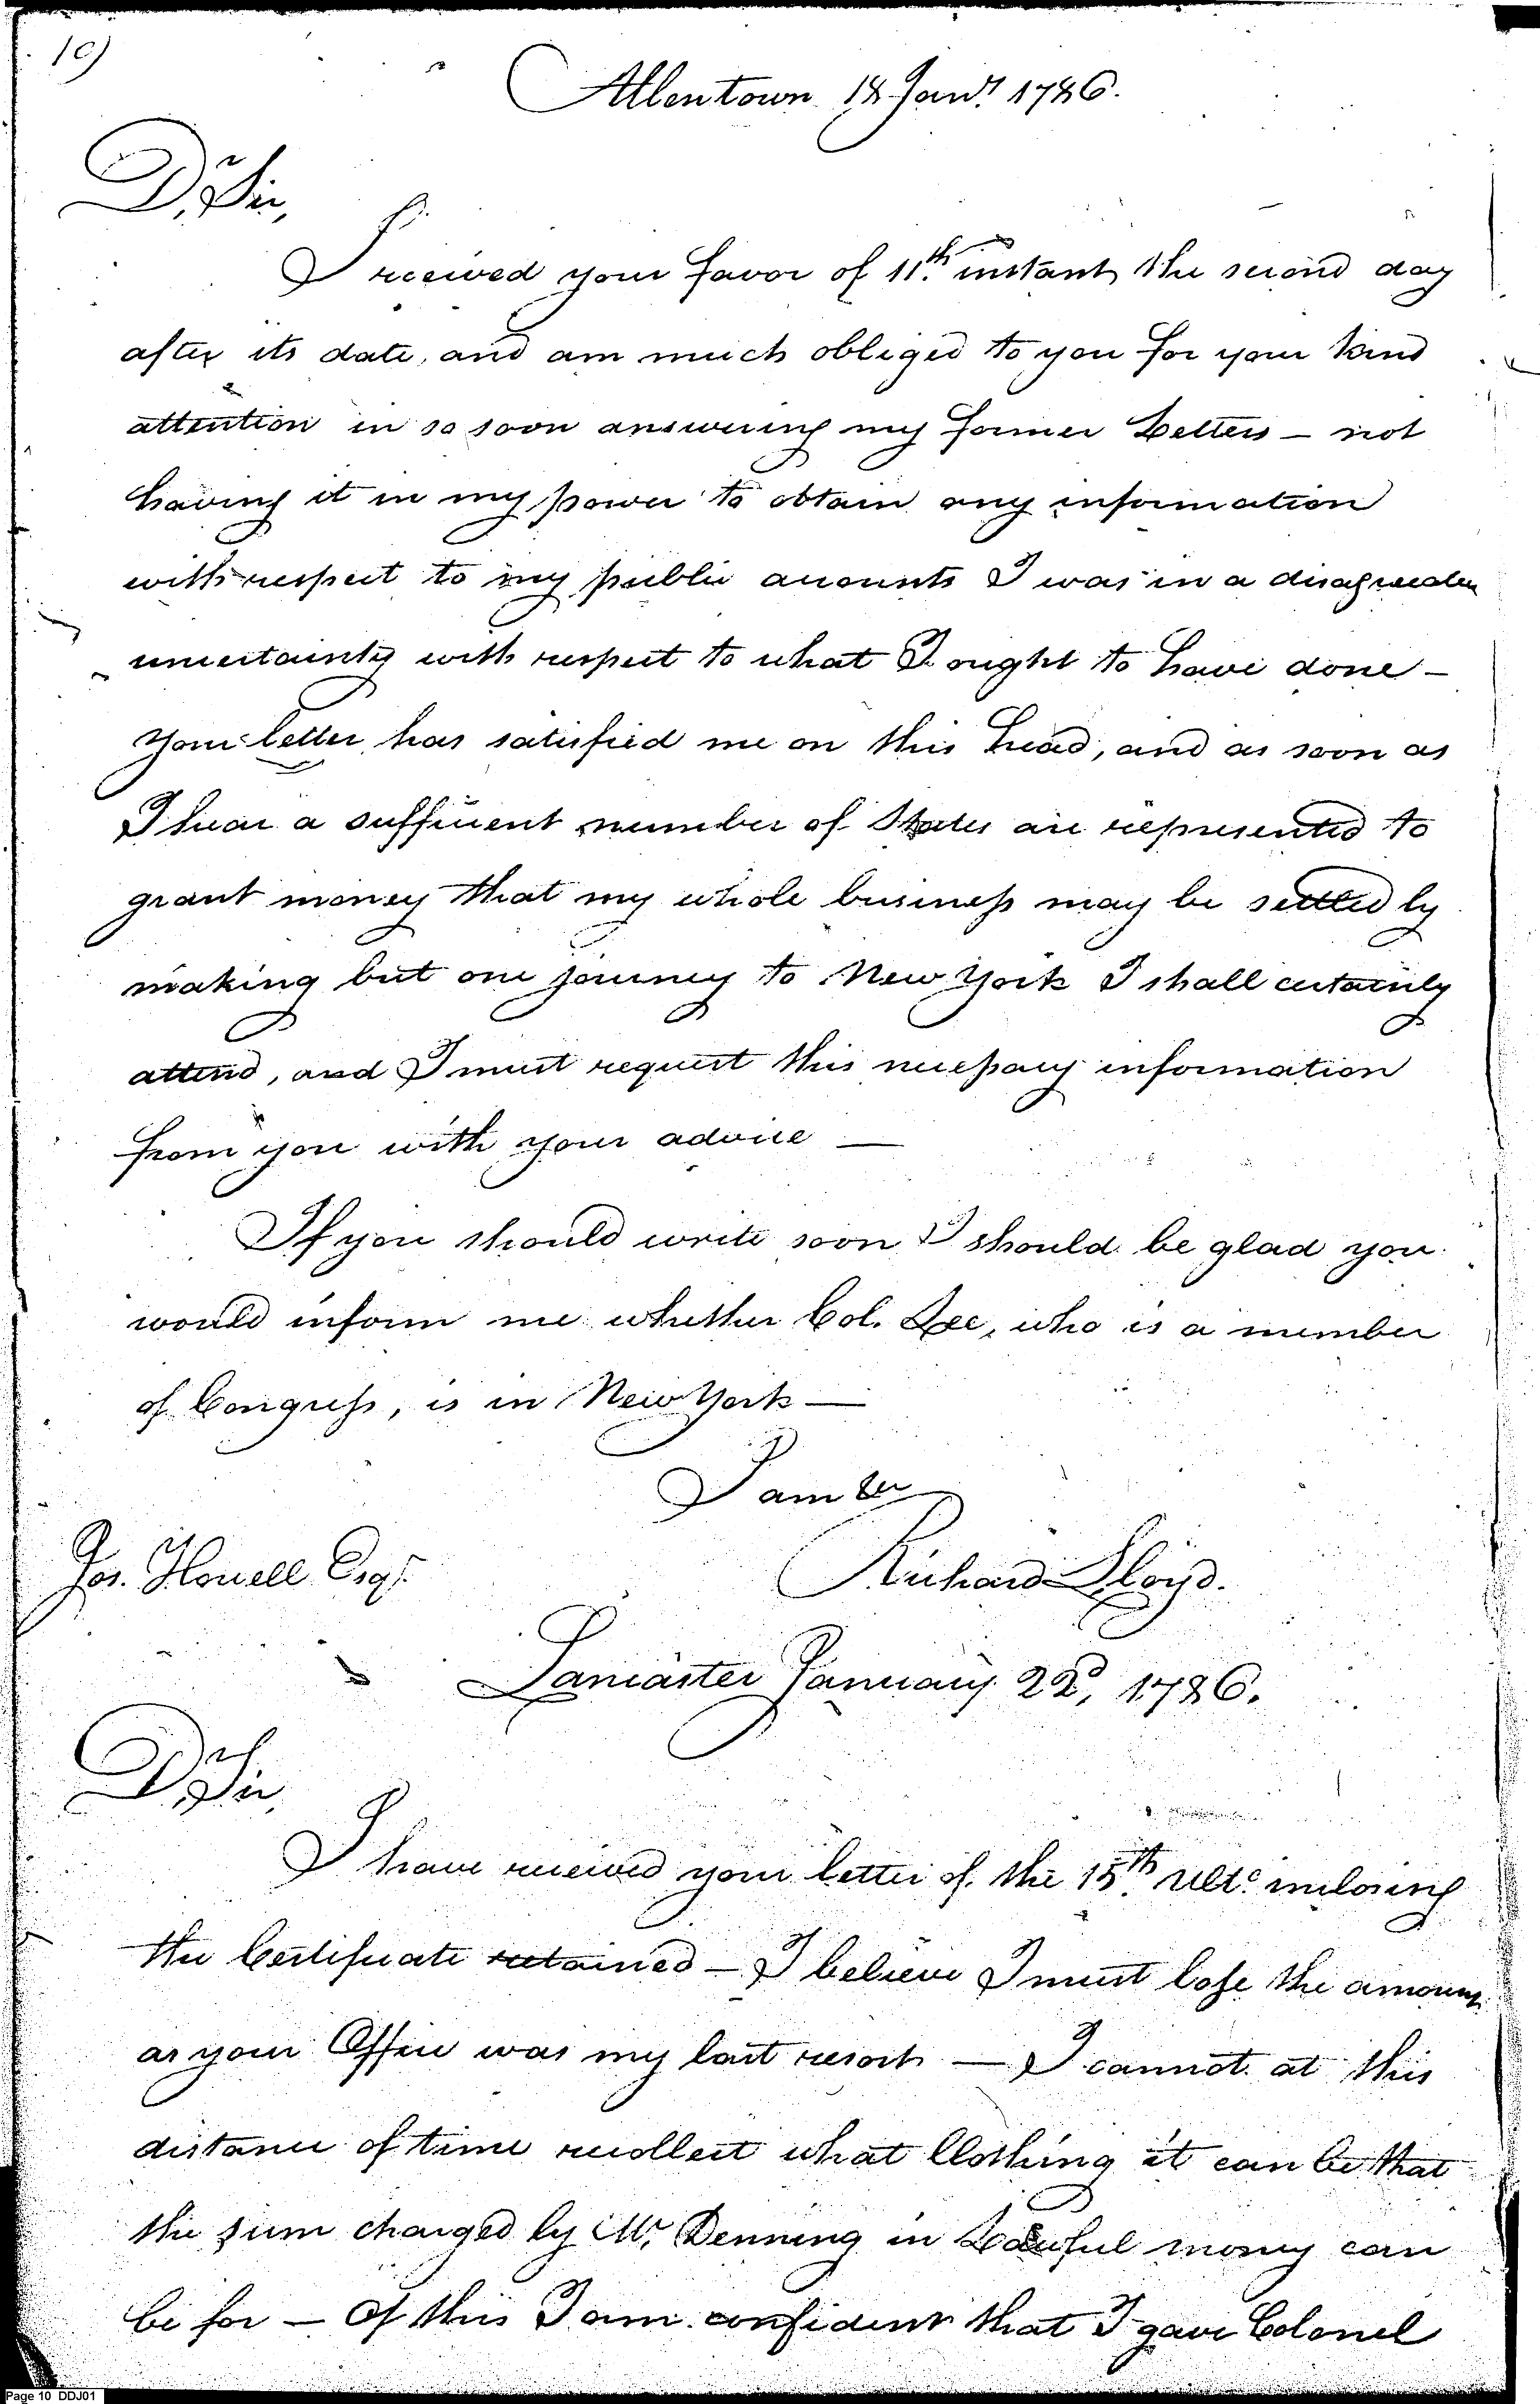 10)
Allentown 18 Jany. 1786.
Dr. Sir,
I received your favor of 11th. instant, the second day
after its date, and am much obliged to you for your kind
attention in so soon answering my former Letters — not
having it in my power to obtain any information
with respect to my public accounts I was in a disagreeable
uncertainty with respect to what I ought to have done —
your letter has satisfied me on this head, and as soon as
I hear a sufficient number of States are represented to
grant money that my whole business may be settled by
making but one journey to New York I shall certainly
attend, and I must request this necessary information
from you with your advice —
If you should write soon I should be glad you
would inform me whether Col. Lee, who is a member
of Congress, is in New York —
I am &c
Jos. Howell Esqr.
Richard Lloyd.
Lancaster January 22d, 1786.
Dr. Sir,
I have received your letter of the 15th. Ulto. inclosing
the Certificate retained — I believe I must lose the amount
as your Office was my last resort — I cannot at this
distance of time recollect what Clothing it can be that
the sum charged by Mr. Denning in Lawful money can
be for — Of this I am confident that I gave Colonel
Page 10 DDJ01